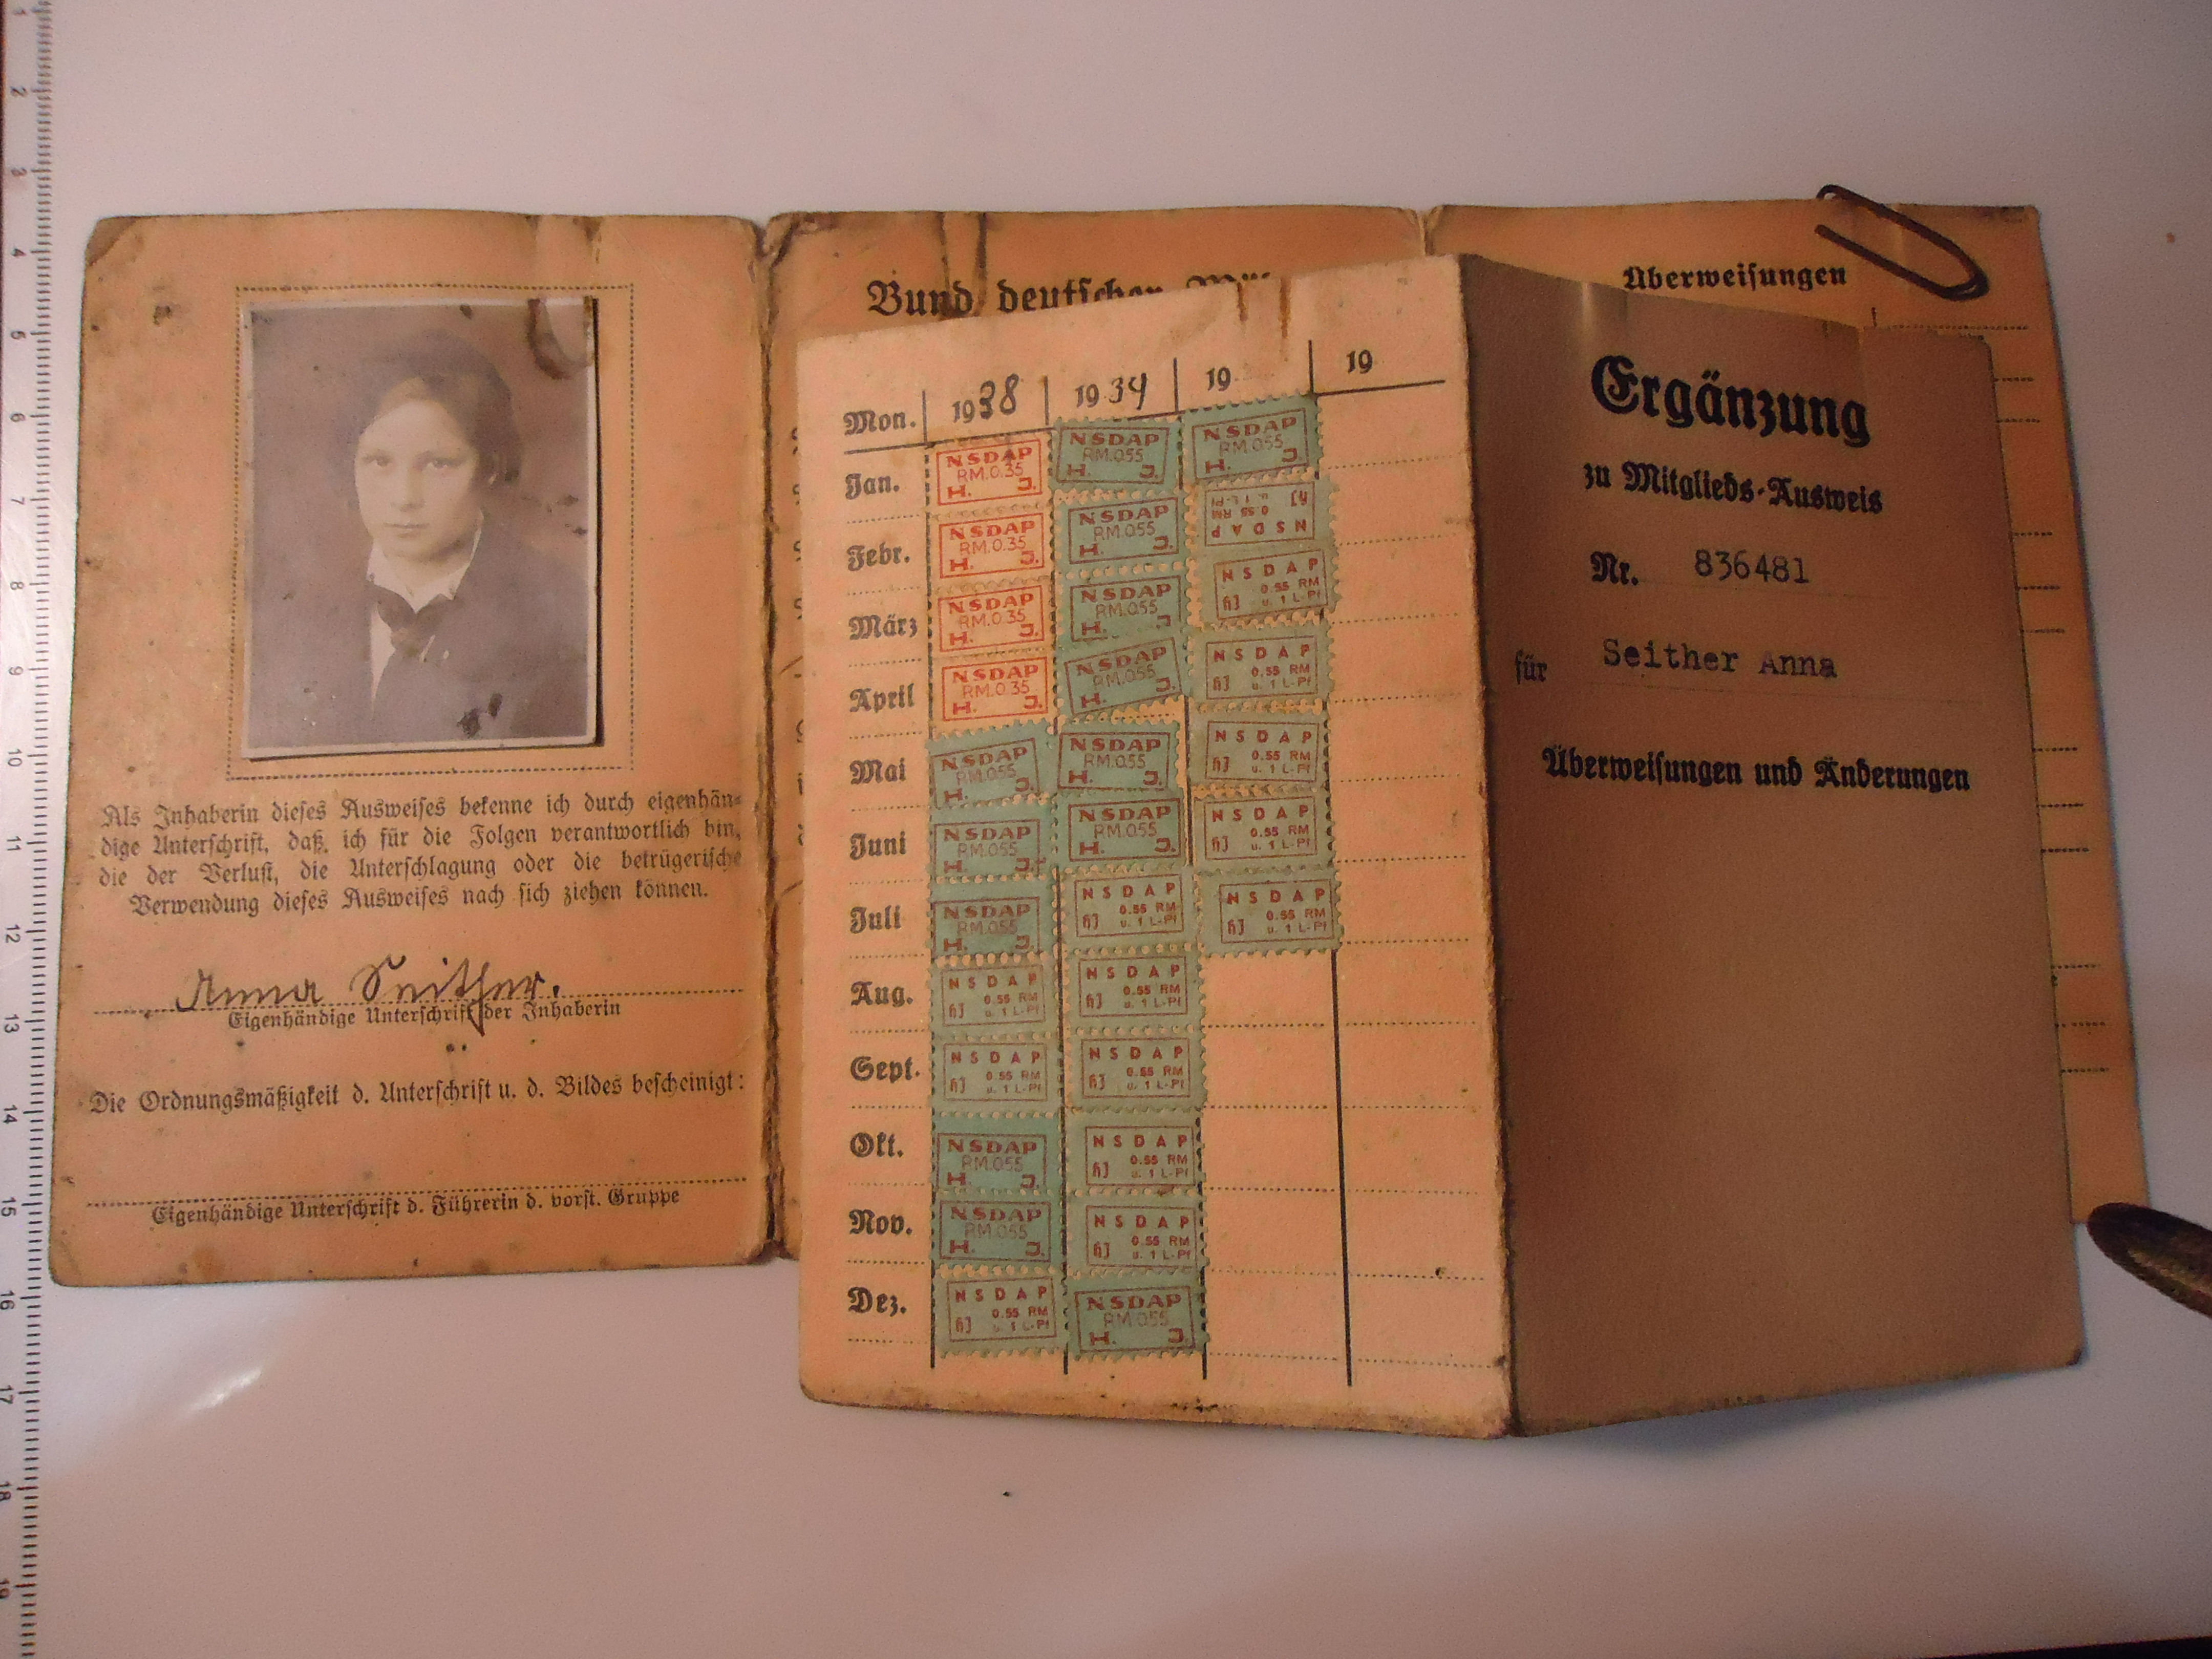 Als Inhaberin dieses Ausweises bekenne ich durch eigenhän-
dige Unterschrift, daß ich für die Folgen verantwortlich bin,
die der Verlust, die Unterschlagung oder die betrügerische
Verwendung dieses Ausweises nach sich ziehen können.
Anna Seither.
Eigenhändige Unterschrift der Inhaberin
Die Ordnungsmäßigkeit d. Unterschrift u. d. Bildes bescheinigt:
Eigenhändige Unterschrift d. Führerin d. vorst. Gruppe
Bund deutscher
Mon. 1938 1934 19 19
Jan.
NSDAP RM.0.35 H. J.
NSDAP RM.0.55 H. J.
NSDAP RM.0.55 H. J.
Febr.
NSDAP RM.0.35 H. J.
NSDAP RM.0.55 H. J.
NSDAP 0.55 RM HJ u. 1 L-Pf
März
NSDAP RM.0.35 H. J.
NSDAP RM.0.55 H. J.
NSDAP 0.55 RM HJ u. 1 L-Pf
April
NSDAP RM.0.35 H. J.
NSDAP RM.0.55 H. J.
NSDAP 0.55 RM HJ u. 1 L-Pf
Mai
NSDAP RM.0.55 H. J.
NSDAP RM.0.55 H. J.
NSDAP 0.55 RM HJ u. 1 L-Pf
Juni
NSDAP RM.0.55 H. J.
NSDAP RM.0.55 H. J.
NSDAP 0.55 RM HJ u. 1 L-Pf
Juli
NSDAP RM.0.55 H. J.
NSDAP 0.55 RM HJ u. 1 L-Pf
NSDAP 0.55 RM HJ u. 1 L-Pf
Aug.
NSDAP 0.55 RM HJ u. 1 L-Pf
NSDAP 0.55 RM HJ u. 1 L-Pf
Sept.
NSDAP 0.55 RM HJ u. 1 L-Pf
NSDAP 0.55 RM HJ u. 1 L-Pf
Okt.
NSDAP RM.0.55 H. J.
NSDAP 0.55 RM HJ u. 1 L-Pf
Nov.
NSDAP RM.0.55 H. J.
NSDAP 0.55 RM HJ u. 1 L-Pf
Dez.
NSDAP 0.55 RM HJ u. 1 L-Pf
NSDAP RM.0.55 H. J.
Überweisungen
Ergänzung
zu Mitglieds-Ausweis
Nr. 836481
für Seither Anna
Überweisungen und Änderungen
1
2
3
4
5
6
7
8
9
10
11
12
13
14
15
16
17
18
19